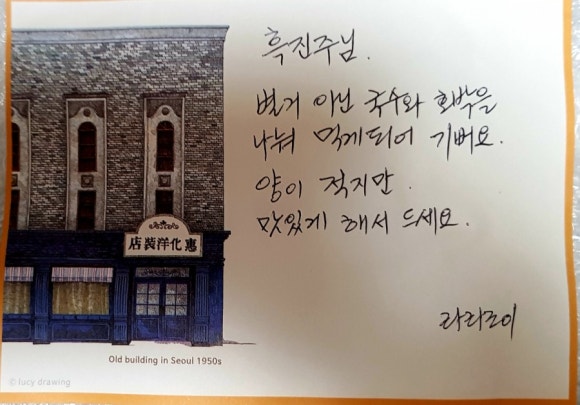 흑진주님.
별거 아닌 국수와 호박을
나눠 먹게되어 기뻐요.
양이 적지만.
맛있게 해서 드세요.
라리조이
店装洋化惠
Old building in Seoul 1950s
© lucy drawing